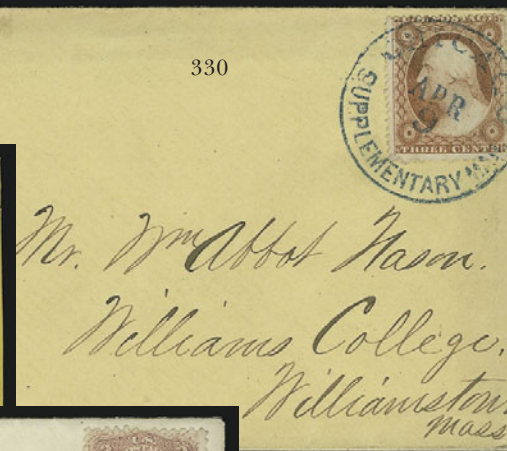 330
CHICAGO
APR
9
SUPPLEMENTARY MAIL
THREE CENTS
Mr. Wm Abbot Nason.
Williams College.
Williamstown
Mass
U.S.